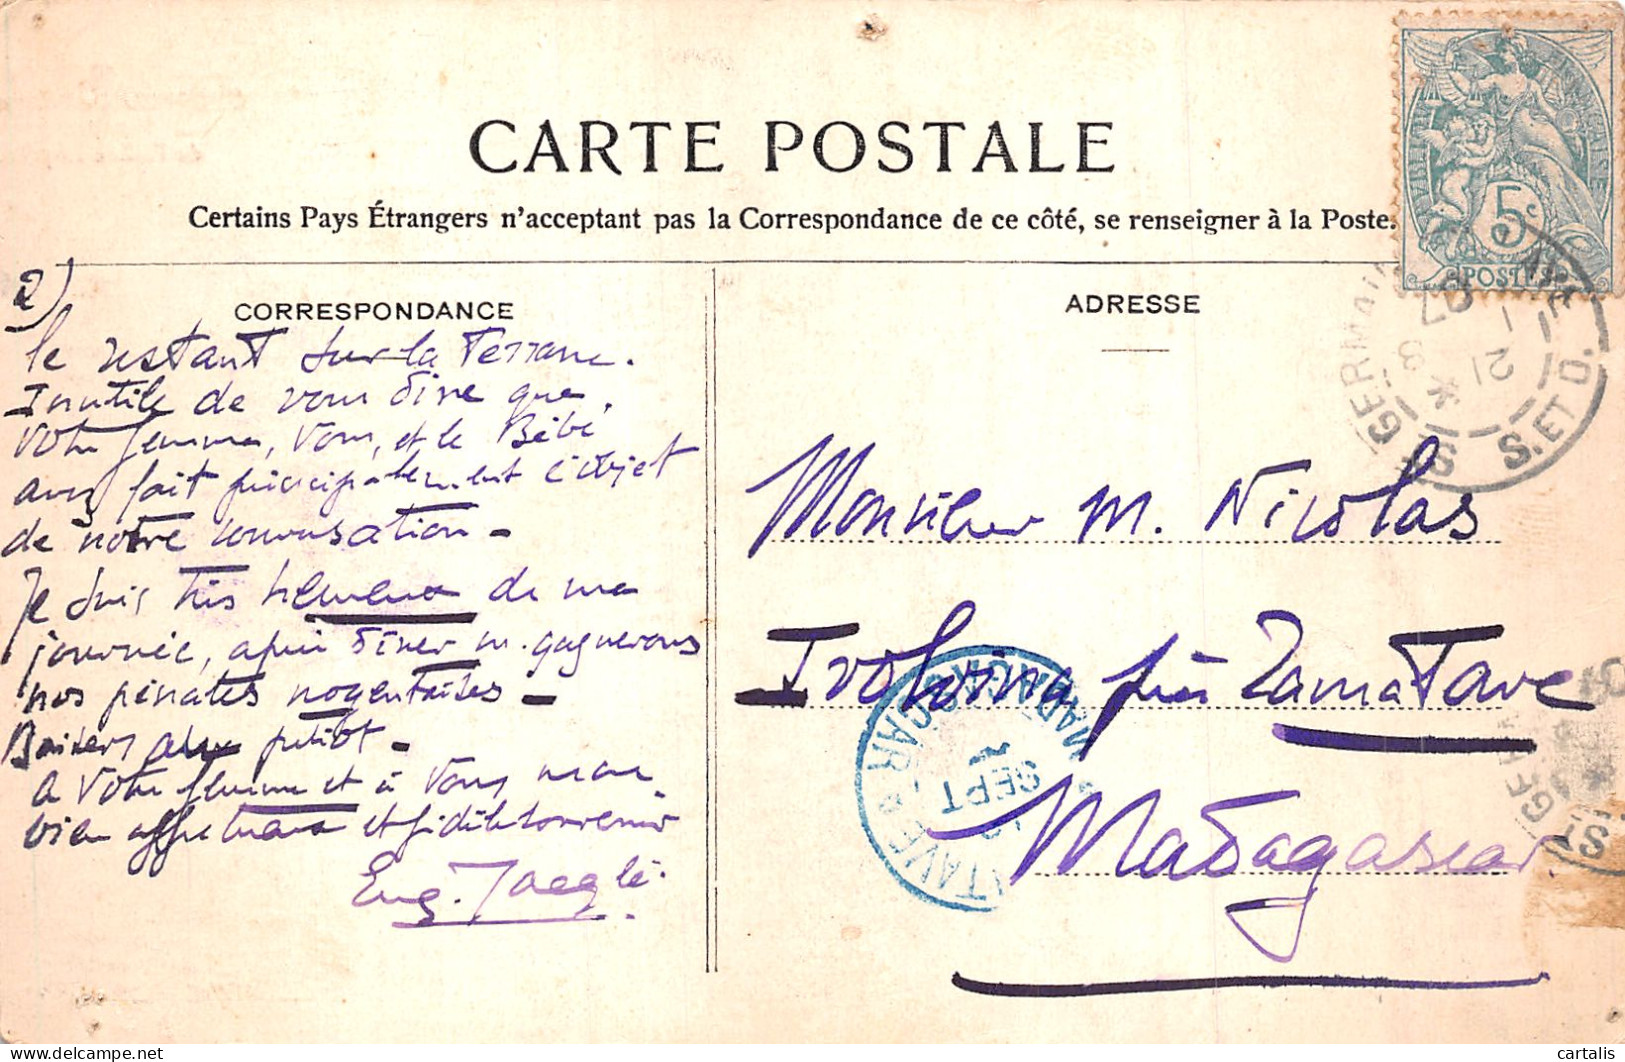 CARTE POSTALE
Certains Pays Étrangers n'acceptant pas la Correspondance de ce côté, se renseigner à la Poste.
2)
CORRESPONDANCE
le restant sur la Terrasse.
Inutile de vous dire que
Votre femme, Vous, et le Bébé
avez fait principalement l'objet
de notre conversation -
Je suis très heureux de ma
journée, après dîner m. gagnerons
nos pénates nogentaises -
Baisers au petiot -
A Votre femme et à Vous mon
bien affectueux et fidèle souvenir
Eug. Jaeglé.
ADRESSE
Monsieur M. Nicolas
Ivoloina près Tamatave
Madagascar
5c
POSTES
GERMAIN
S. ET O.
21
07
MADAGASCAR
SEPT
ST GERM
cartalis